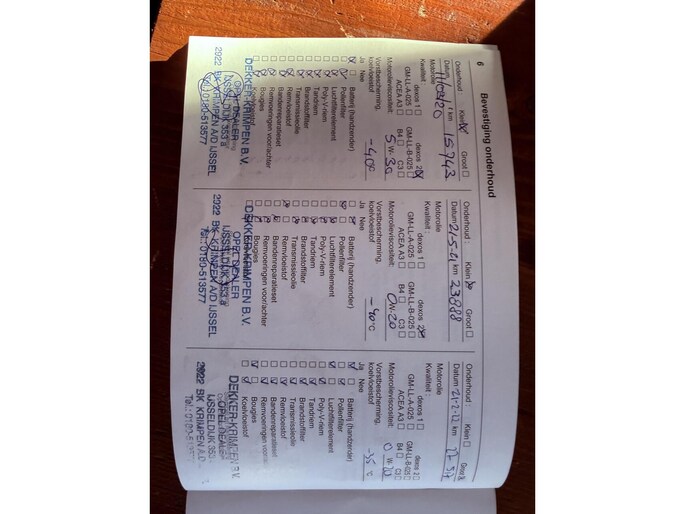 6
Bevestiging onderhoud
Onderhoud : Klein Groot
Datum 11/03/20 km 15743
Motorolie
Kwaliteit : dexos 1 dexos 2
GM-LL-A-025 GM-LL-B-025
ACEA A3 B4 C3
Motorolieviscositeit: 5 W-30
Vorstbescherming, koelvloeistof -40°
Ja Nee
Batterij (handzender)
Pollenfilter
Luchtfilterelement
Poly-V-riem
Tandriem
Brandstoffilter
Transmissieolie
Remvloeistof
Bandenreparatieset
Remvoeringen voor/achter
Bougies
Koelvloeistof
DEKKER-KRIMPEN B.V.
OPEL DEALER
IJSSELDIJK 353 a
2922 BK KRIMPEN A/D IJSSEL
Tel.: 0180-513577
Onderhoud : Klein Groot
Datum 21-5-21 km 23888
Motorolie
Kwaliteit : dexos 1 dexos 2
GM-LL-A-025 GM-LL-B-025
ACEA A3 B4 C3
Motorolieviscositeit: 0W-20
Vorstbescherming, koelvloeistof -40°C
Ja Nee
Batterij (handzender)
Pollenfilter
Luchtfilterelement
Poly-V-riem
Tandriem
Brandstoffilter
Transmissieolie
Remvloeistof
Bandenreparatieset
Remvoeringen voor/achter
Bougies
DEKKER-KRIMPEN B.V.
OPEL DEALER
IJSSELDIJK 353 a
2922 BK KRIMPEN A/D IJSSEL
Tel.: 0180-513577
Onderhoud : Klein Groot
Datum km
Motorolie
Kwaliteit : dexos 1 dexos 2
GM-LL-A-025 GM-LL-B-025
ACEA A3 B4 C3
Motorolieviscositeit: 0 W
Vorstbescherming, koelvloeistof -35 °C
Ja Nee
Batterij (handzender)
Pollenfilter
Luchtfilterelement
Poly-V-riem
Tandriem
Brandstoffilter
Transmissieolie
Remvloeistof
Bandenreparatieset
Remvoeringen voor
Bougies
Koelvloeistof
DEKKER-KRIMPEN B.V.
OPEL DEALER
IJSSELDIJK 353
2922 BK KRIMPEN A/D
Tel.: 0180-5135